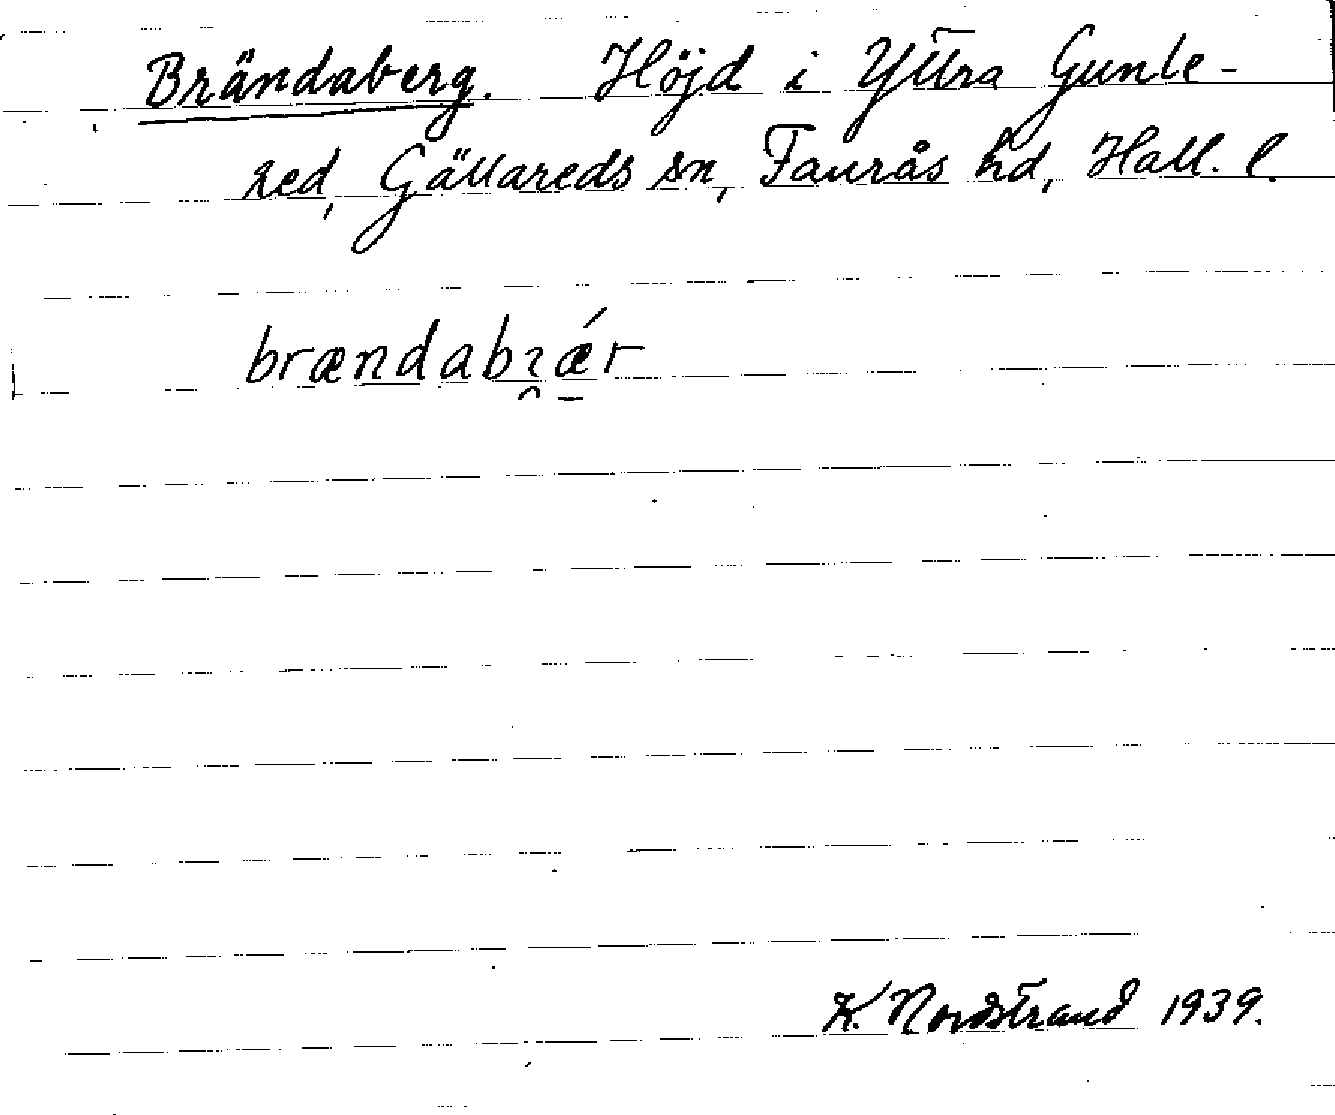 Brändaberg. Höjd i Yttra Gunle-
red, Gällareds sn, Faurås hd, Hall. l.
brændabɿǽr
K. Nordstrand 1939.